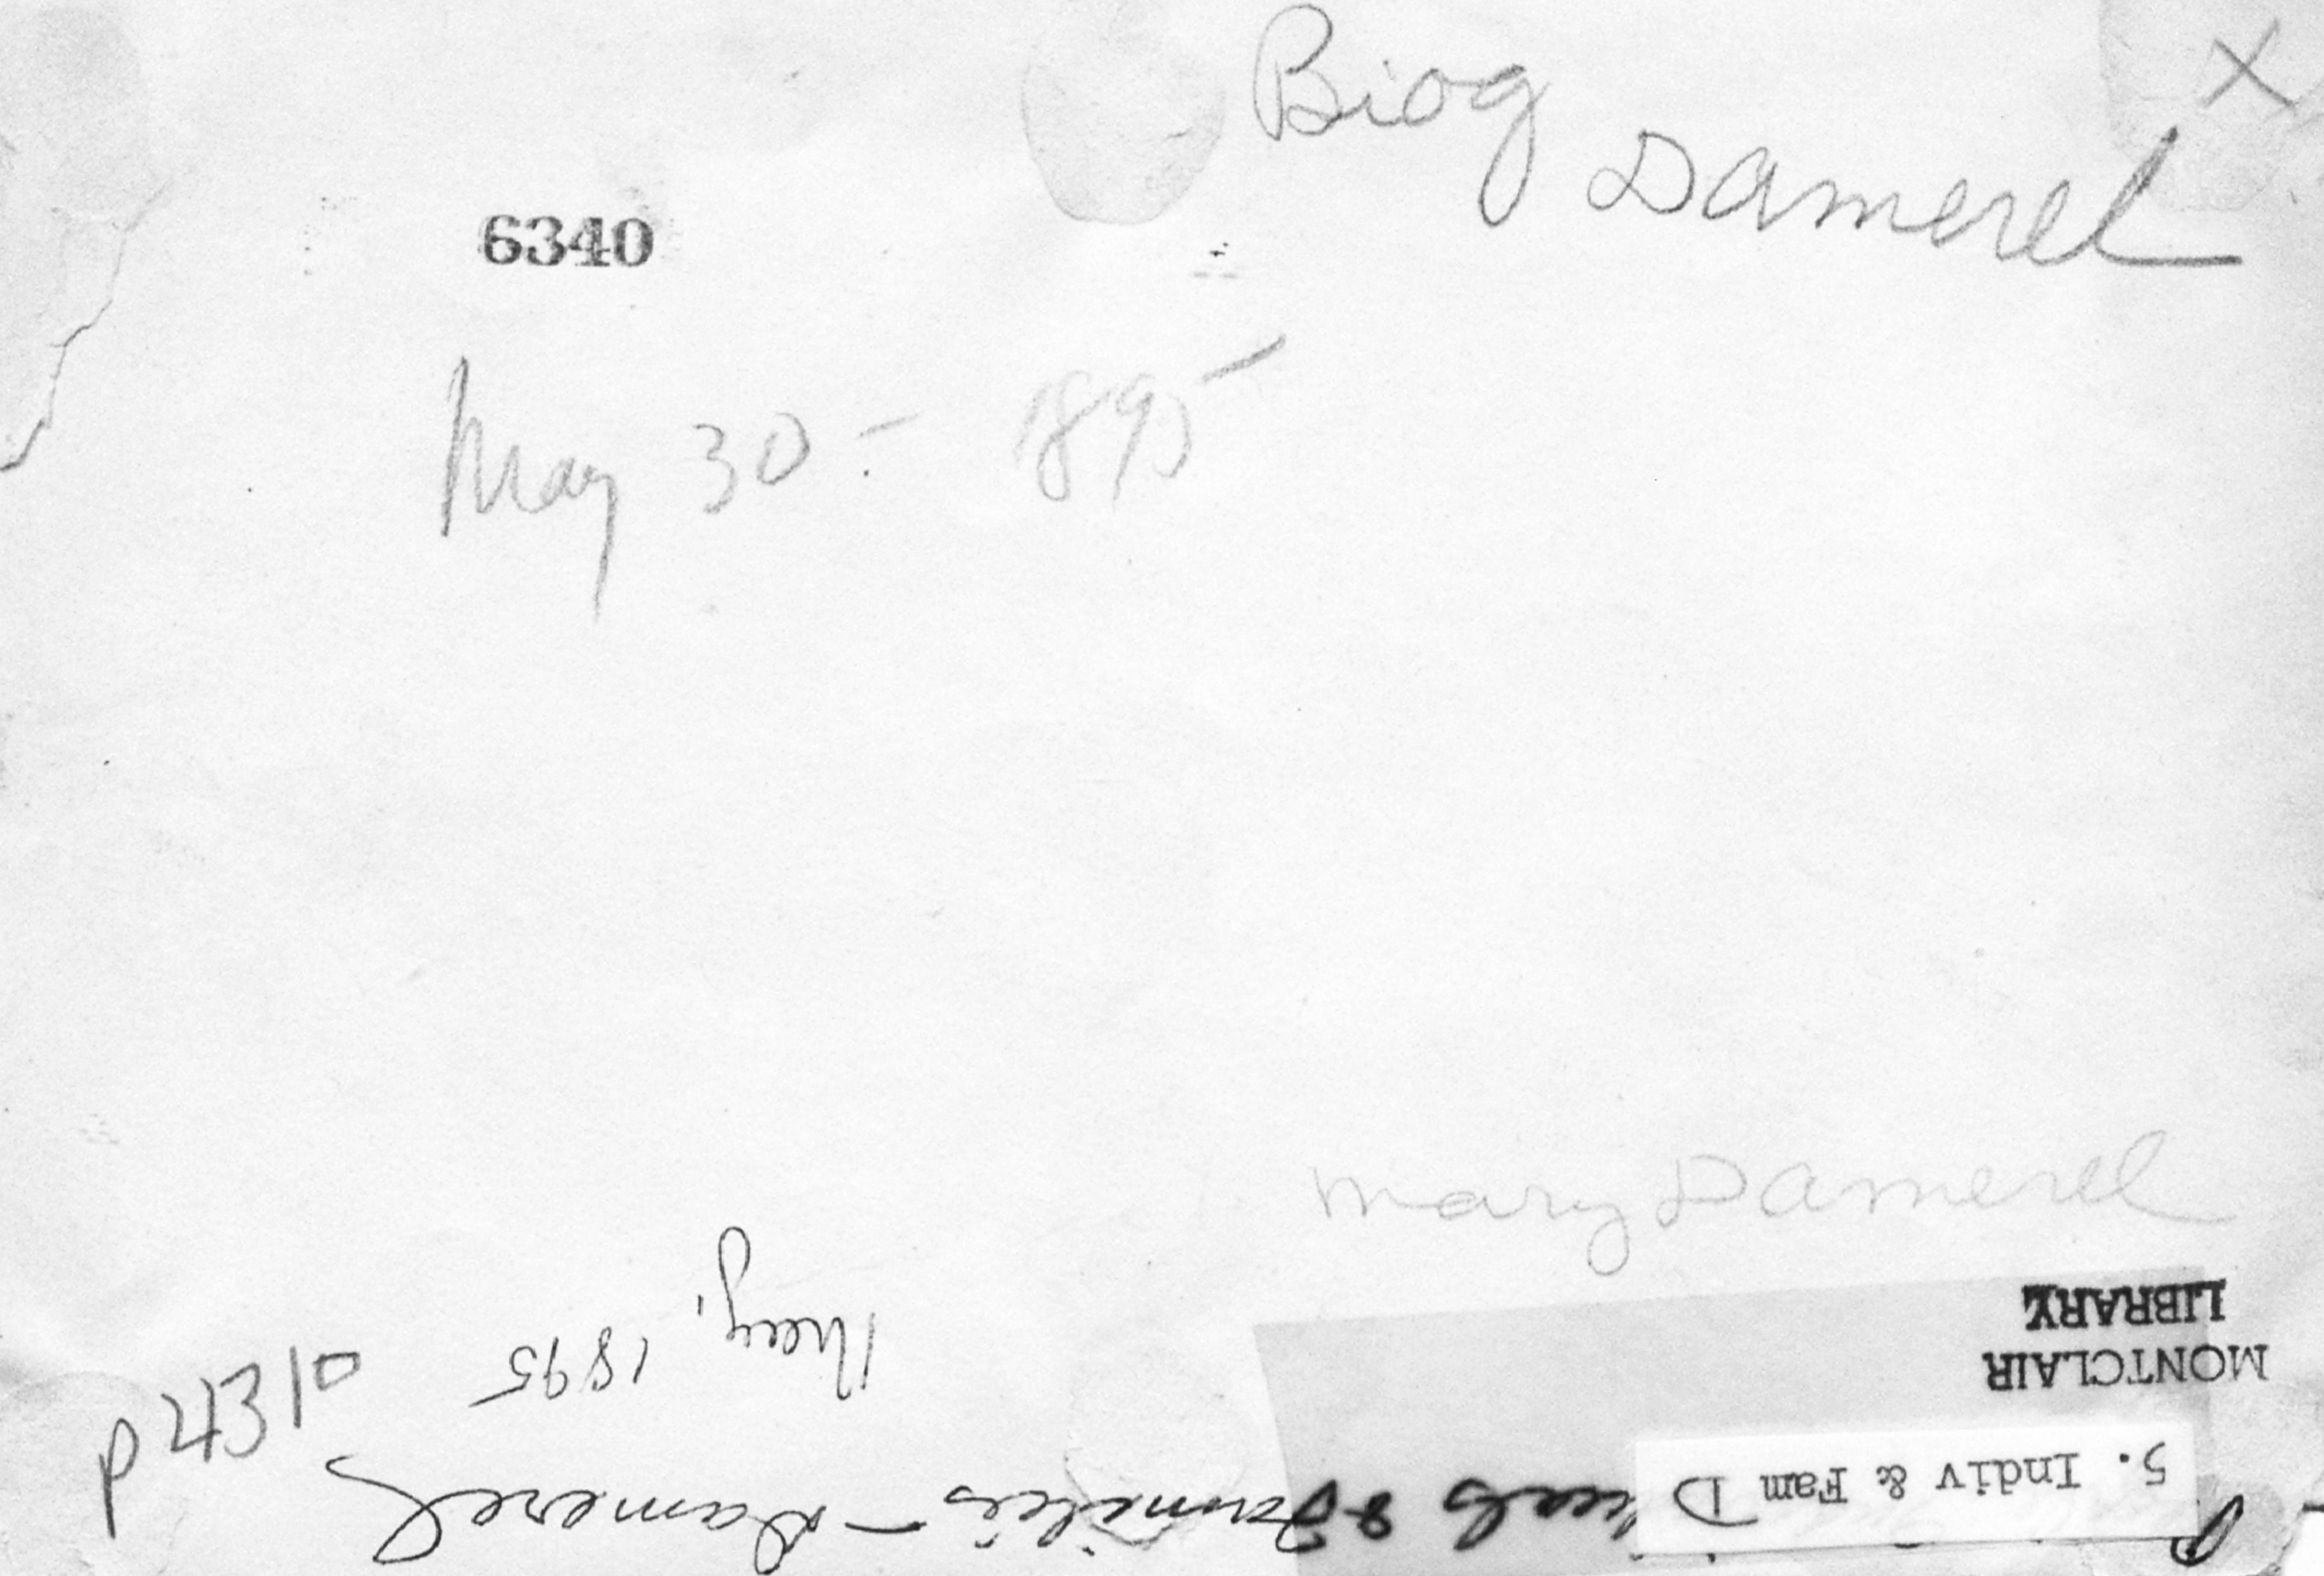 Biog
X
Damerel
6340
May 30 - 1895
Mary Damerel
5. Indiv & Fam D
MONTCLAIR
LIBRARY
& Families - Damerel
May, 1895